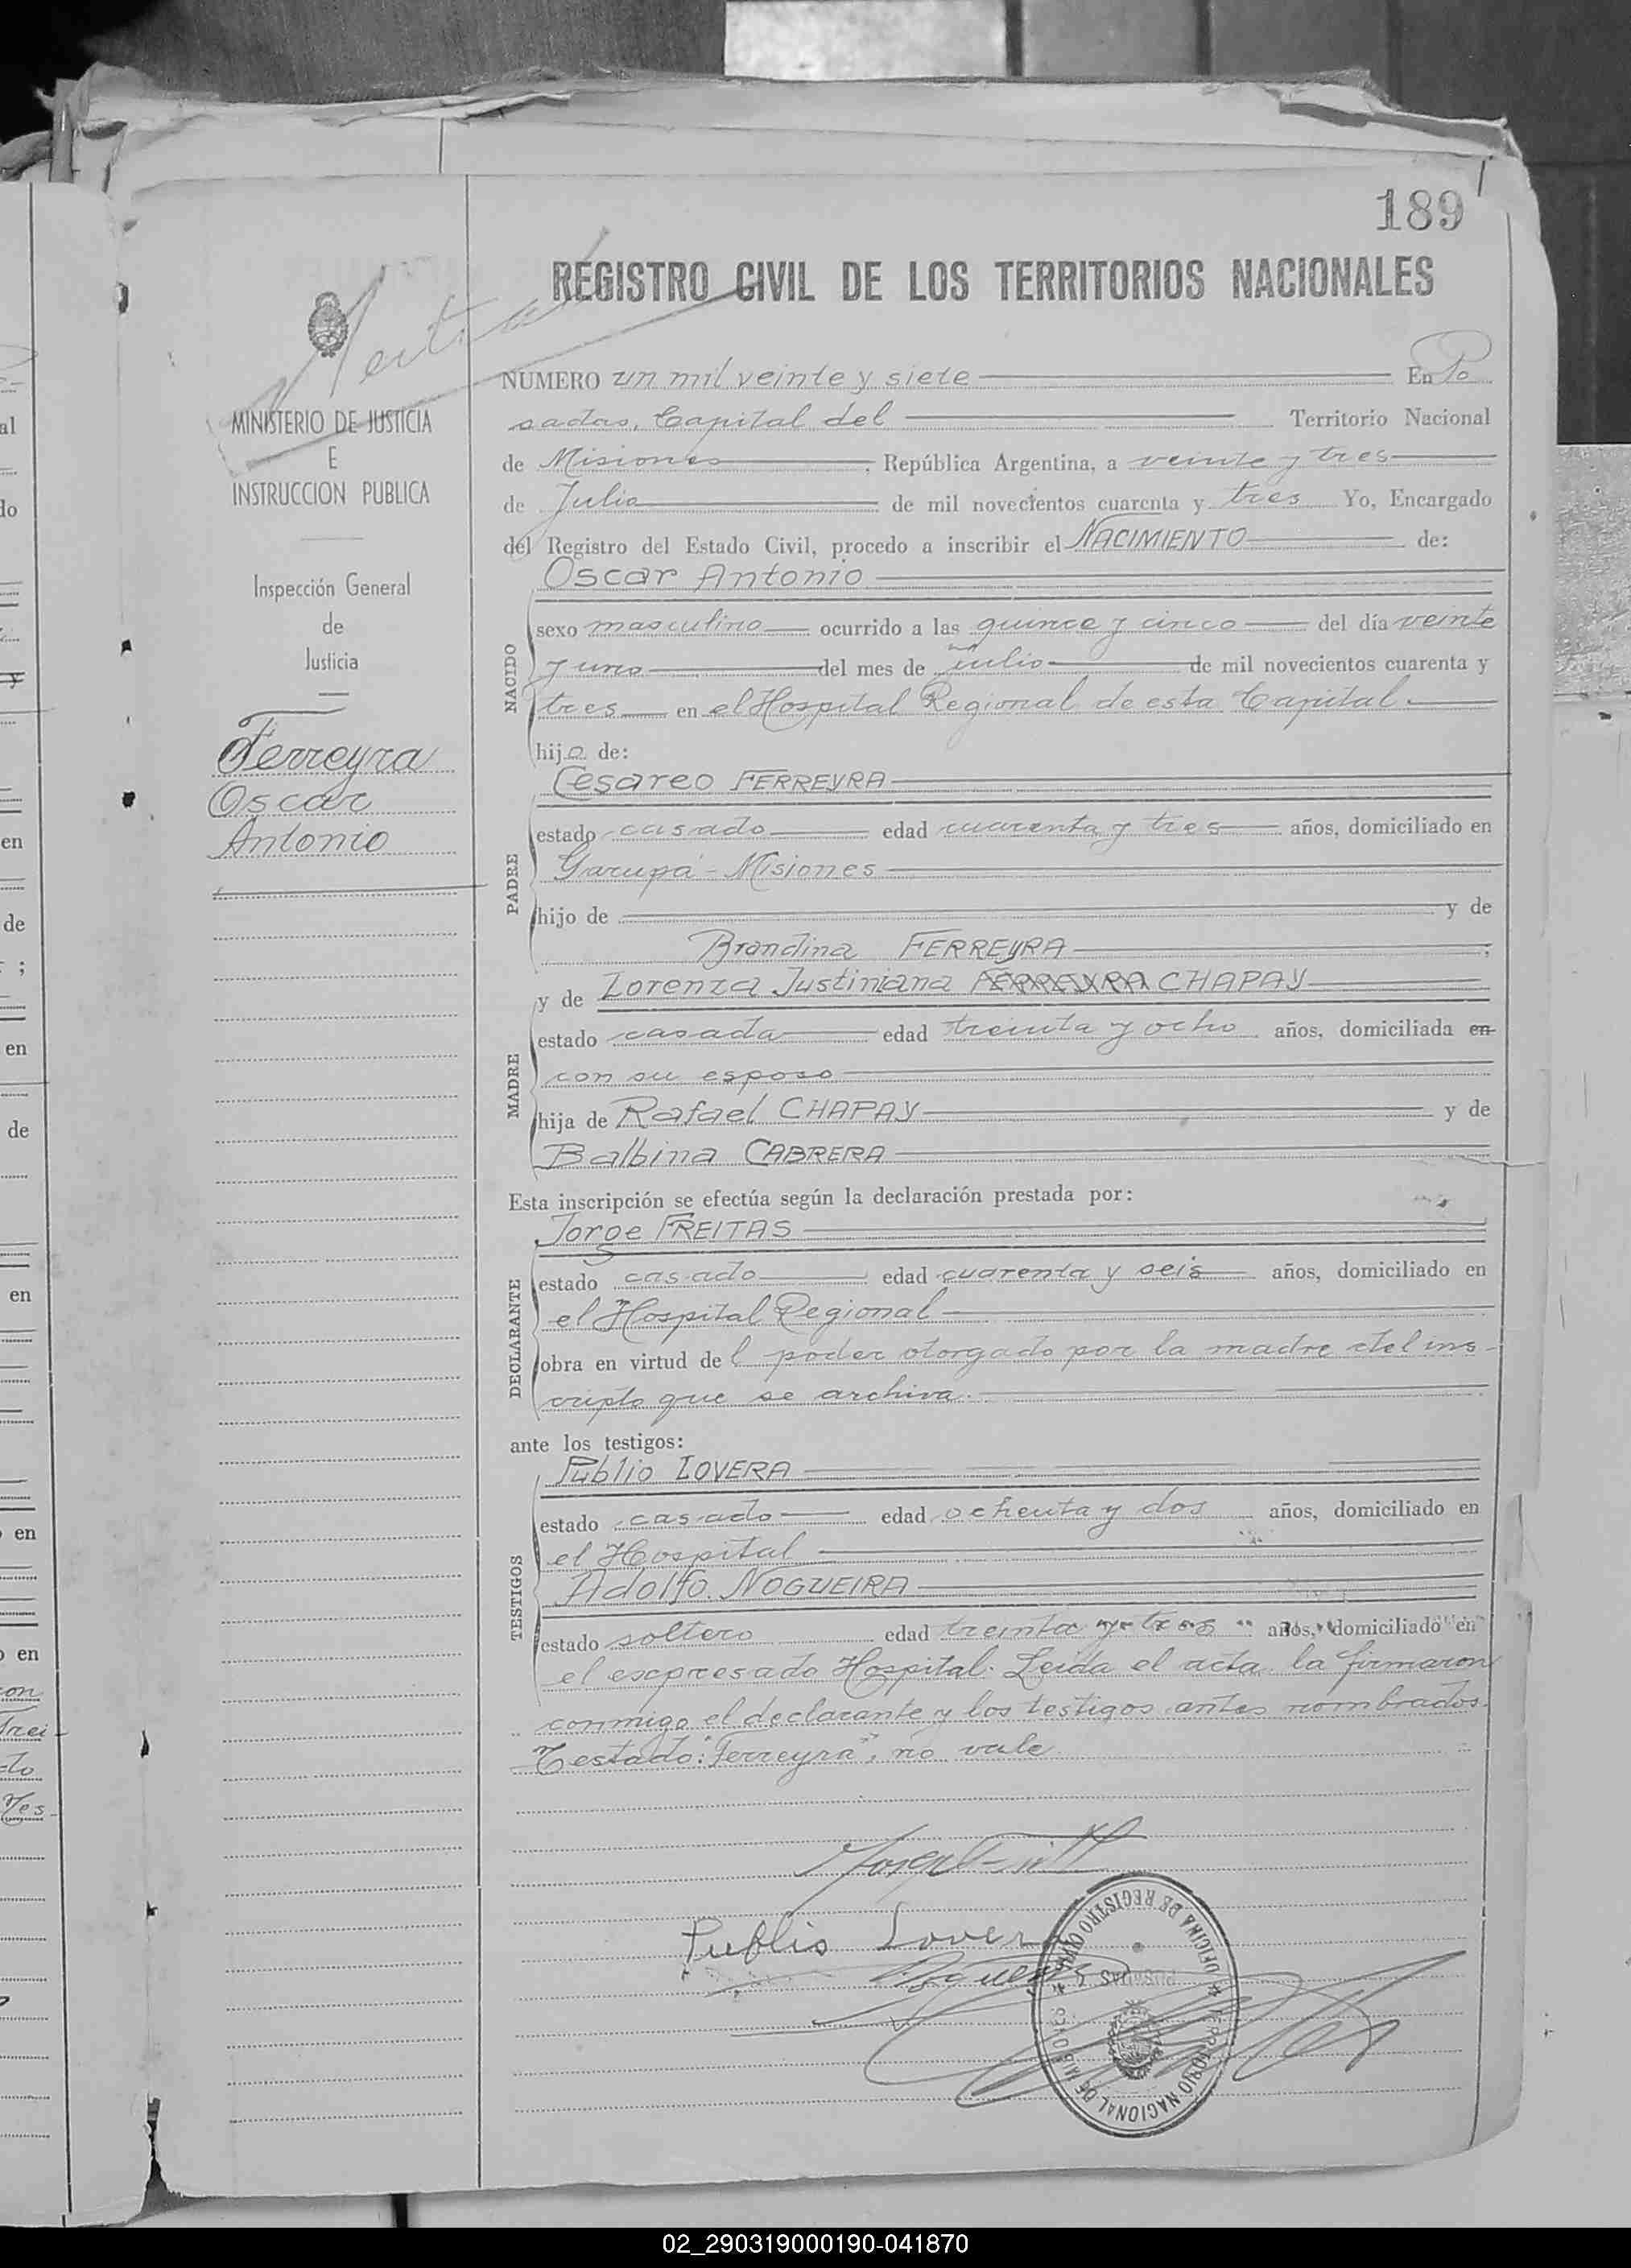 189
REGISTRO CIVIL DE LOS TERRITORIOS NACIONALES
MINISTERIO DE JUSTICIA
E
INSTRUCCION PUBLICA
Inspección General
de
Justicia
Ferreyra
Oscar
Antonio
NUMERO un mil veinte y siete En Po
sadas, Capital del Territorio Nacional
de Misiones, República Argentina, a veinte y tres
de Julio de mil novecientos cuarenta y tres Yo, Encargado
del Registro del Estado Civil, procedo a inscribir el NACIMIENTO de:
Oscar Antonio
NACIDO
sexo masculino ocurrido a las quince y cinco del día veinte
y uno del mes de julio de mil novecientos cuarenta y
tres en el Hospital Regional de esta Capital.
hijo de:
Cesareo FERREYRA
PADRE
estado casado edad cuarenta y tres años, domiciliado en
Garupá - Misiones
hijo de y de
Brandina FERREYRA ;
y de Lorenza Justiniana FERREYRA CHAPAY
MADRE
estado casada edad treinta y ocho años, domiciliada en
con su esposo
hija de Rafael CHAPAY y de
Balbina CABRERA
Esta inscripción se efectúa según la declaración prestada por:
Jorge FREITAS
DECLARANTE
estado casado edad cuarenta y seis años, domiciliado en
el Hospital Regional
obra en virtud del poder otorgado por la madre del ins-
cripto que se archiva.
ante los testigos:
Publio LOVERA
TESTIGOS
estado casado edad ochenta y dos años, domiciliado en
el Hospital
Adolfo NOGUEIRA
estado soltero edad treinta y tres años, domiciliado en
el expresado Hospital. Leída el acta la firmaron
conmigo el declarante y los testigos antes nombrados.
Testado: "Ferreyra", no vale
Publio Lovera
OFICINA DE REGISTRO CIVIL
POSADAS
TERRITORIO NACIONAL DE MISIONES
al
do
y
en
de
;
en
de
en
en
en
con
Frei-
do
02_290319000190-041870